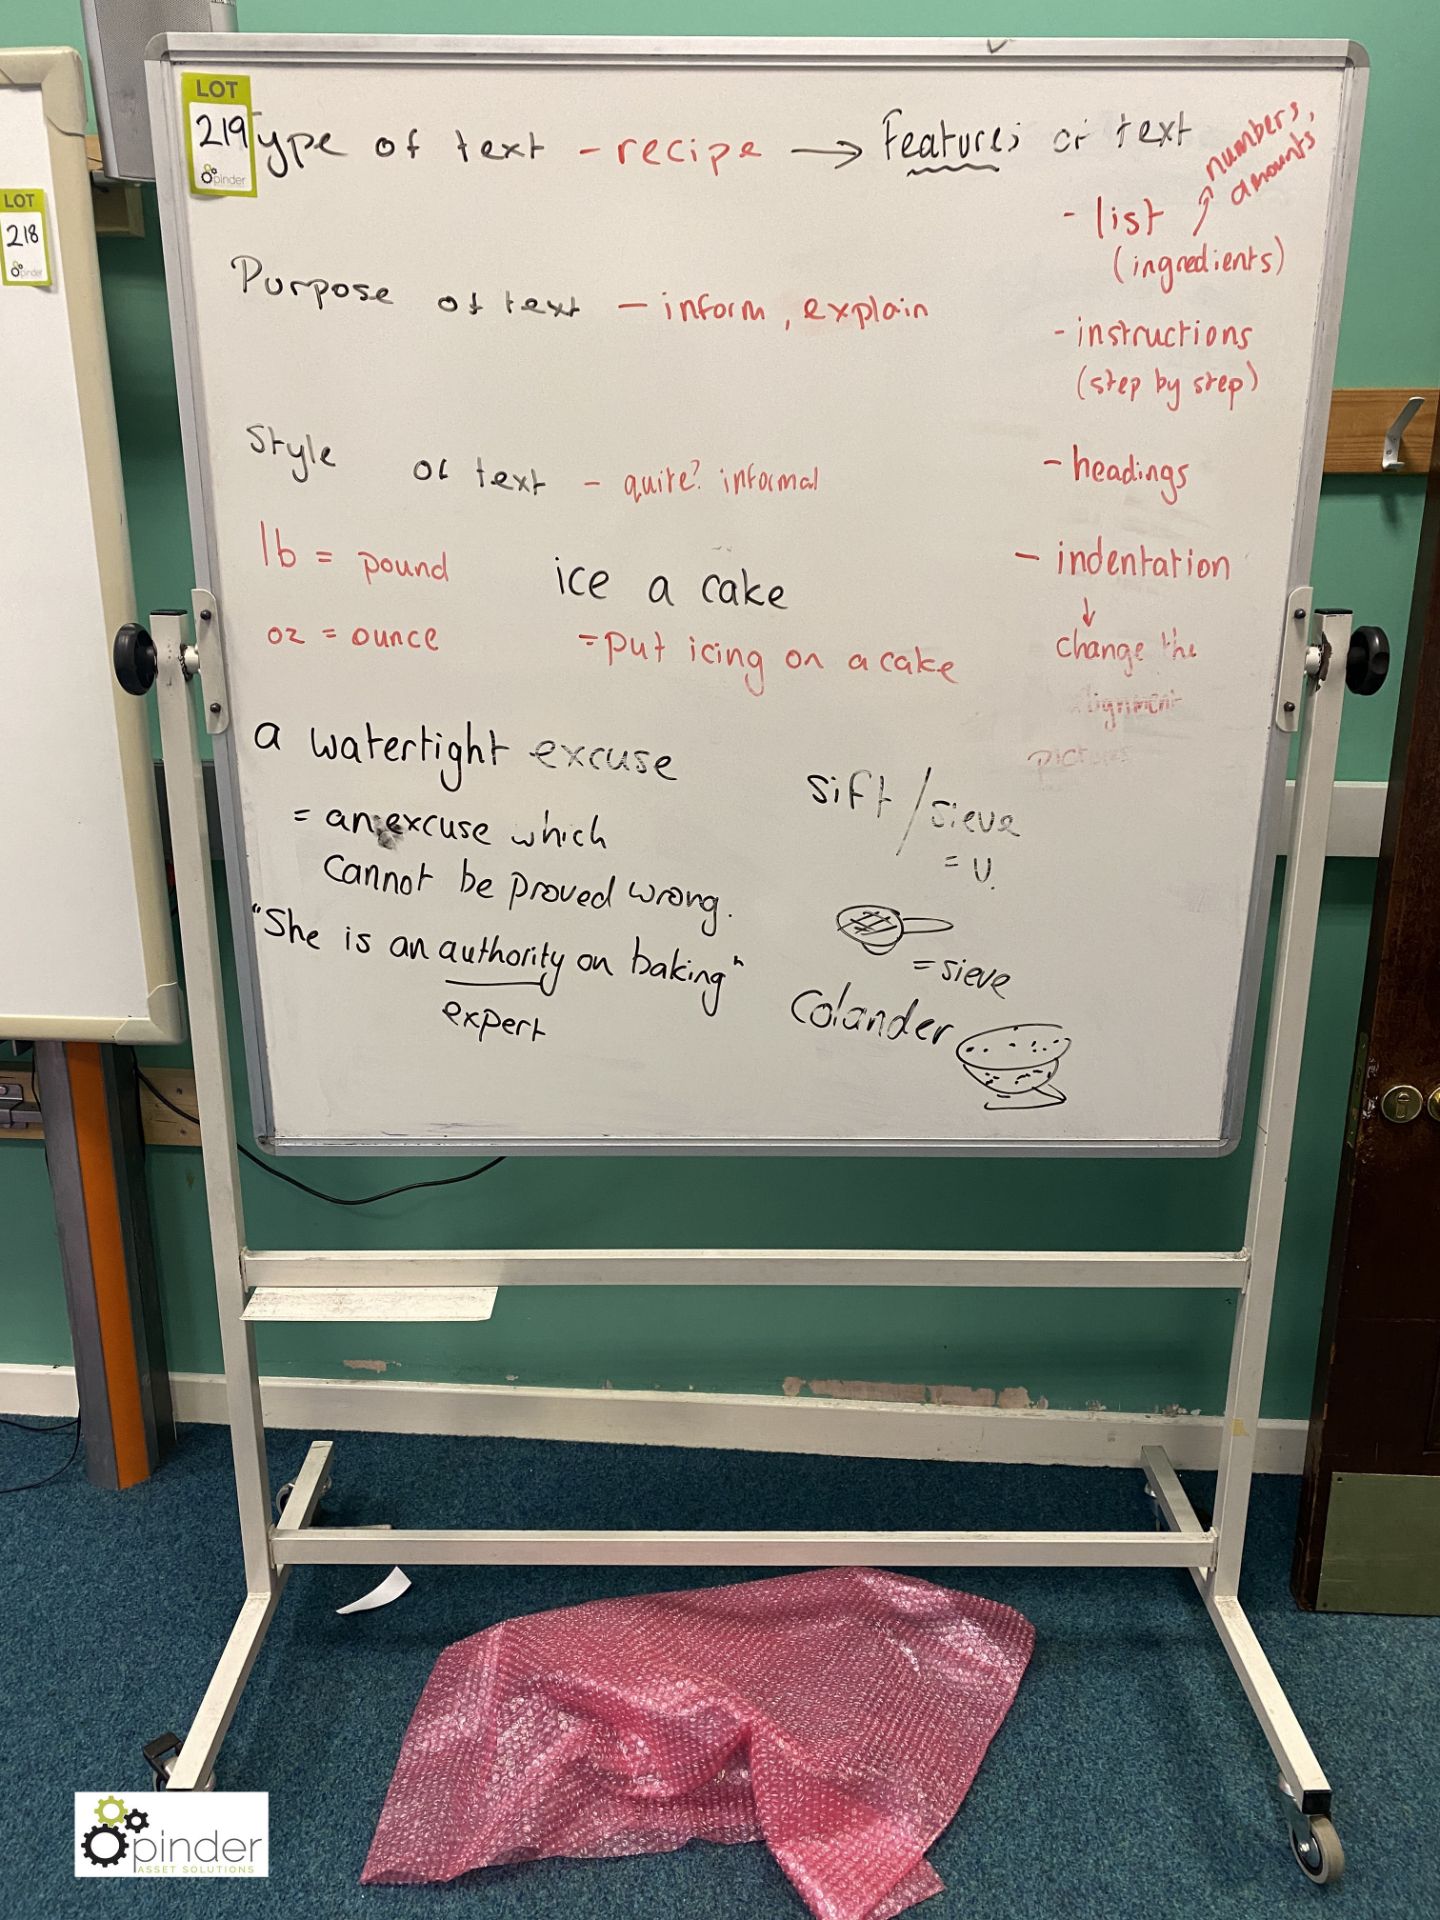 LOT
219
pinder
LOT
218
pinder
Type of text - recipe → Features of text
numbers,
amounts
- list
(ingredients)
Purpose of text - inform, explain
- instructions
(step by step)
Style of text - quite? informal
- headings
lb = pound
ice a cake
- indentation
oz = ounce
= put icing on a cake
↓
change the
alignment
pictures
a watertight excuse
= an excuse which
cannot be proved wrong.
sift / sieve
= v.
= sieve
"She is an authority on baking"
expert
Colander
pinder
ASSET SOLUTIONS